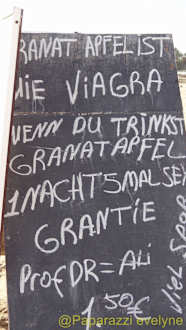 RANAT APFEL IST
WIE VIAGRA
WENN DU TRINKST
GRANATAPFEL
1 NACHT 5 MAL SEX
GRANTIE
Prof DR = ALi
VieL SPASS
1.50€
@Paparazzi evelyne